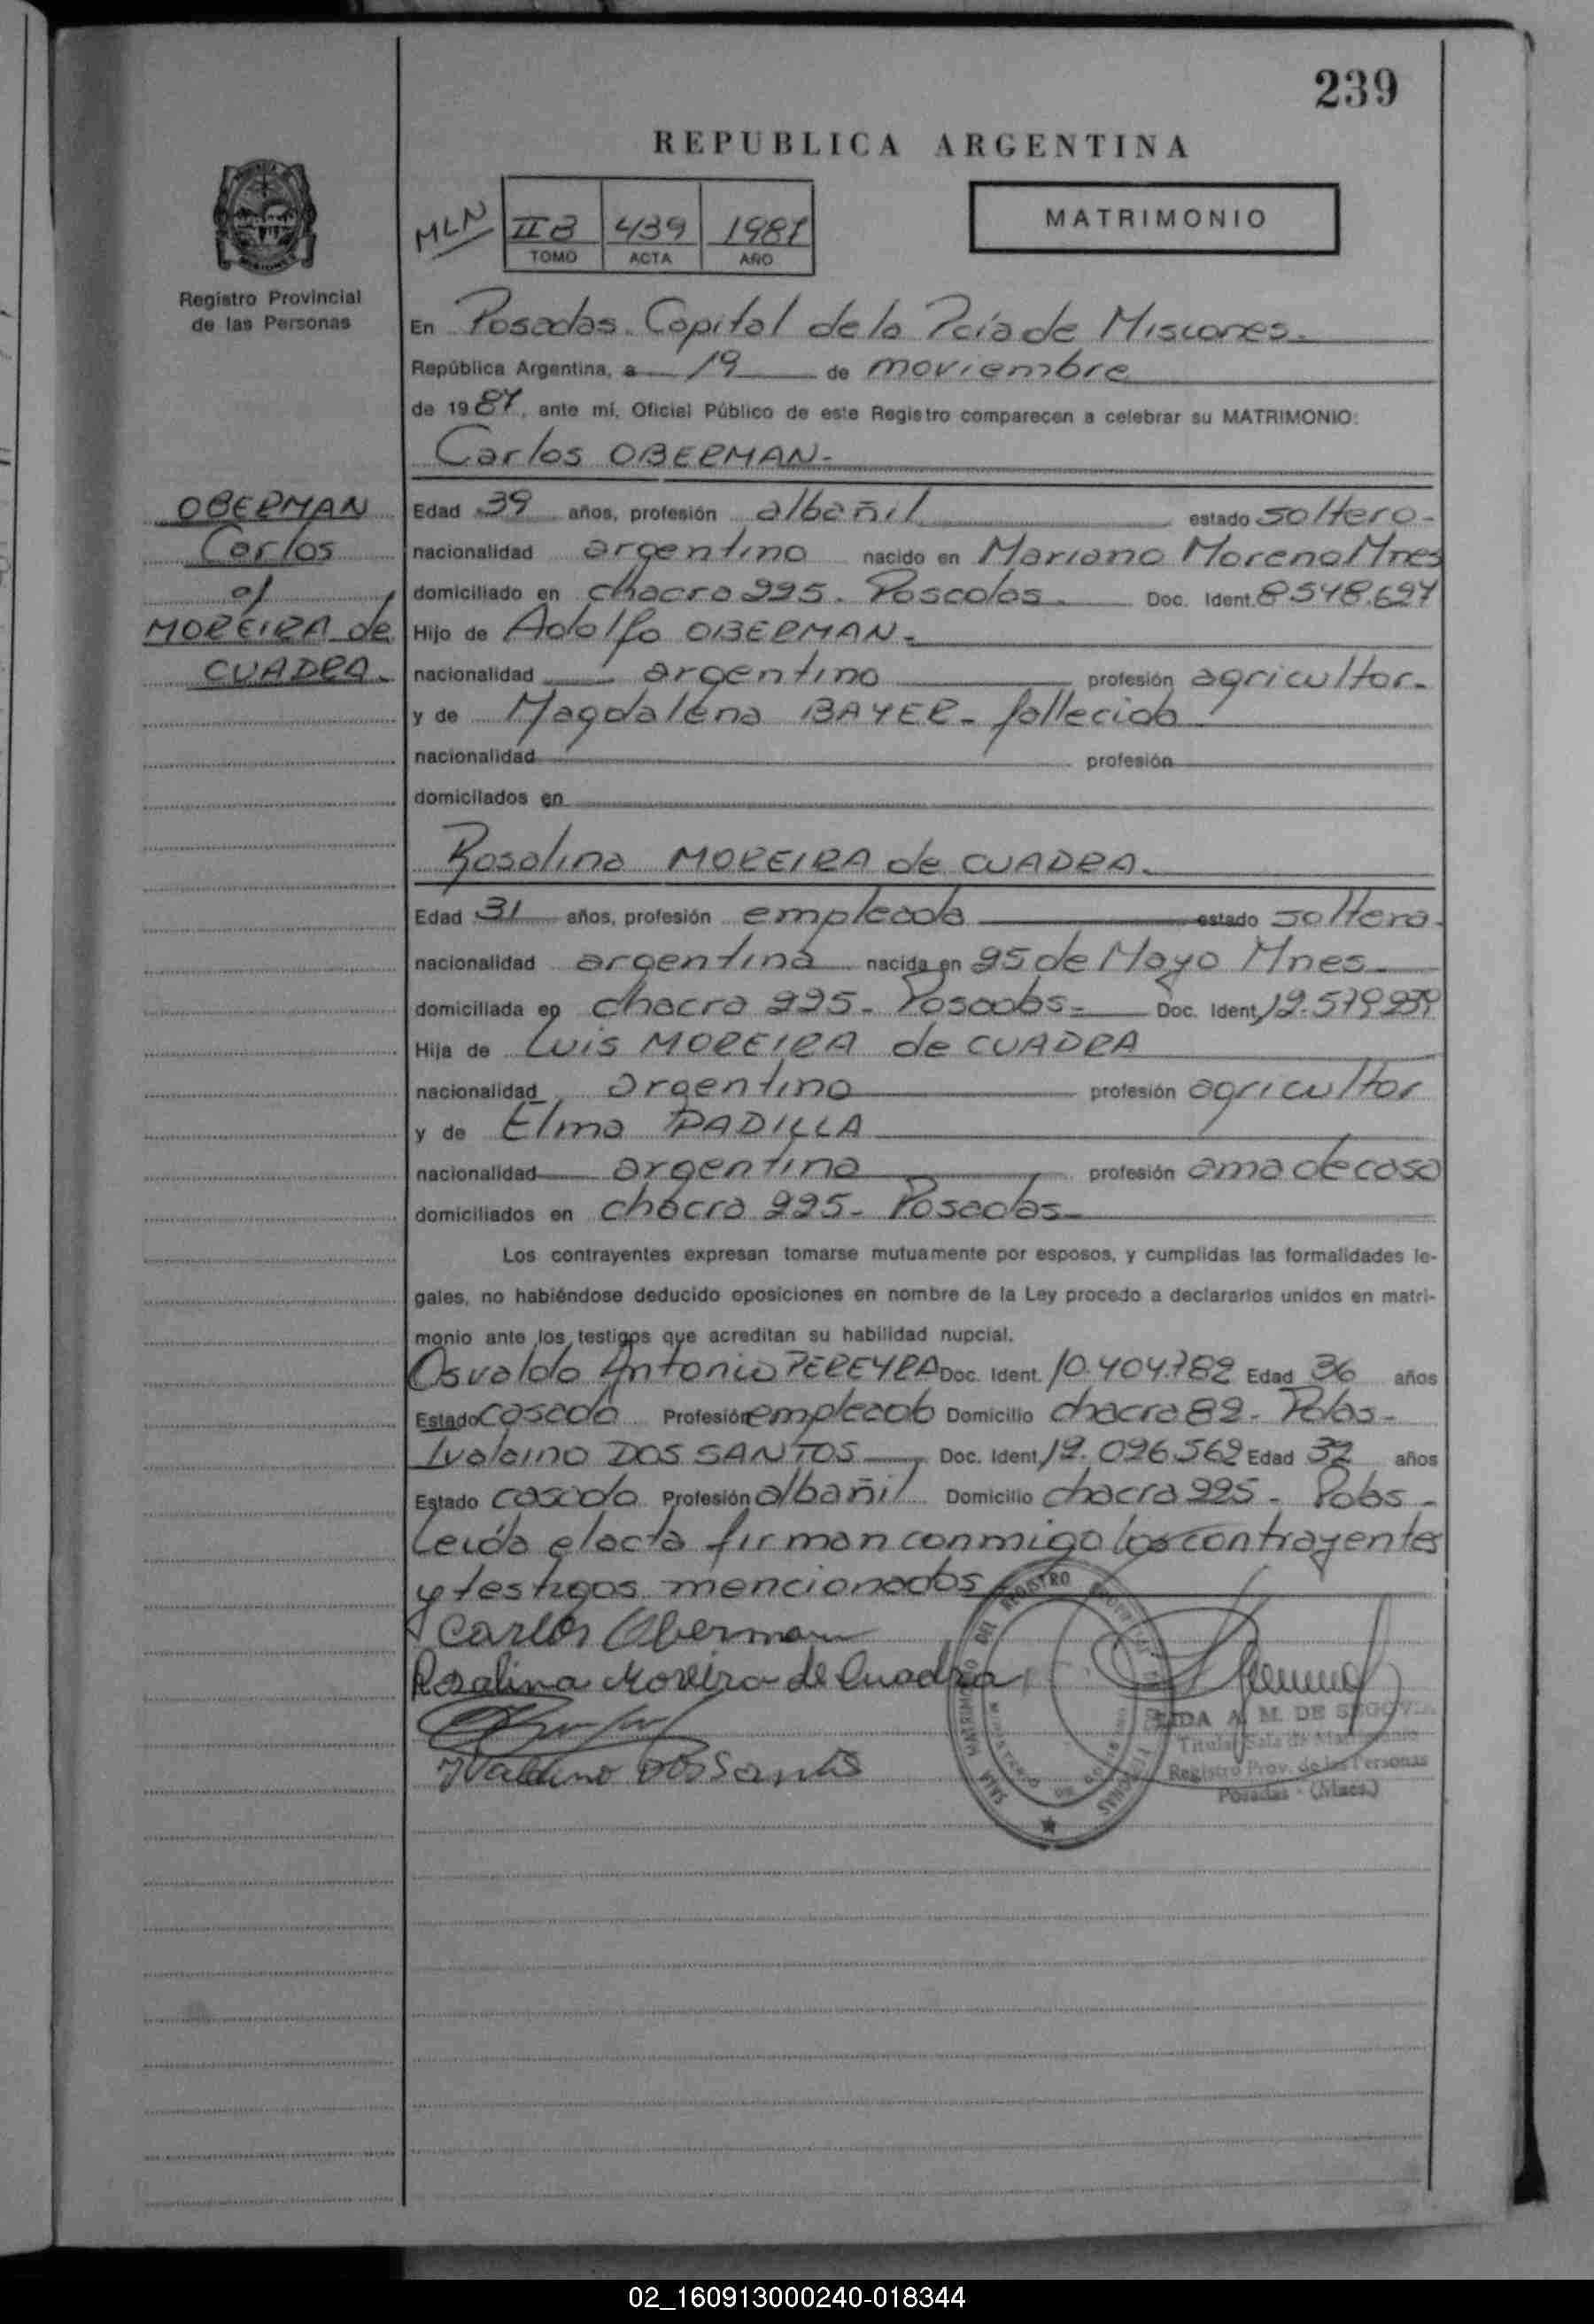 239
REPUBLICA ARGENTINA
MLN
II B 439 1987
TOMO ACTA AÑO
MATRIMONIO
Registro Provincial
de las Personas
En Posadas. Capital de la Pcia de Misiones.
República Argentina, a 19 de noviembre
de 1987, ante mí, Oficial Público de este Registro comparecen a celebrar su MATRIMONIO:
Carlos OBERMAN.
OBERMAN
Carlos
c/
MOREIRA de
CUADRA.
Edad 39 años, profesión albañil estado soltero.
nacionalidad argentino nacido en Mariano Moreno Mnes
domiciliado en chacra 225. Posadas. Doc. Ident. 8.548.697
Hijo de Adolfo OBERMAN.
nacionalidad argentino profesión agricultor.
y de Magdalena BAYER. fallecida
nacionalidad profesión
domicilados en
Rosalina MOREIRA de CUADRA.
Edad 31 años, profesión empleada estado soltera.
nacionalidad argentina nacida en 25 de Mayo Mnes.
domiciliada en chacra 225. Posadas. Doc. Ident. 12.579.239
Hija de Luis MOREIRA de CUADRA
nacionalidad argentino profesión agricultor
y de Elma PADILLA
nacionalidad argentina profesión ama de casa
domiciliados en chacra 225. Posadas.
Los contrayentes expresan tomarse mutuamente por esposos, y cumplidas las formalidades le-
gales, no habiéndose deducido oposiciones en nombre de la Ley procedo a declararlos unidos en matri-
monio ante los testigos que acreditan su habilidad nupcial.
Osvaldo Antonio PEREYRA Doc. Ident. 10.404.782 Edad 36 años
Estado casado Profesión empleado Domicilio chacra 82. Pdas.
Ivalaino DOS SANTOS Doc. Ident. 12.026.562 Edad 32 años
Estado casado Profesión albañil Domicilio chacra 225. Pdas.
Leída el acta firman conmigo los contrayentes
y testigos mencionados
Carlos Oberman
Rosalina Moreira de Cuadra
Dos Santos
SALA MATRIMONIO DEL REGISTRO PERSONAS
A. M. DE SEGOVIA
Titular Sala de Matrimonio
Registro Prov. de las Personas
Posadas - (Mnes.)
02_160913000240-018344